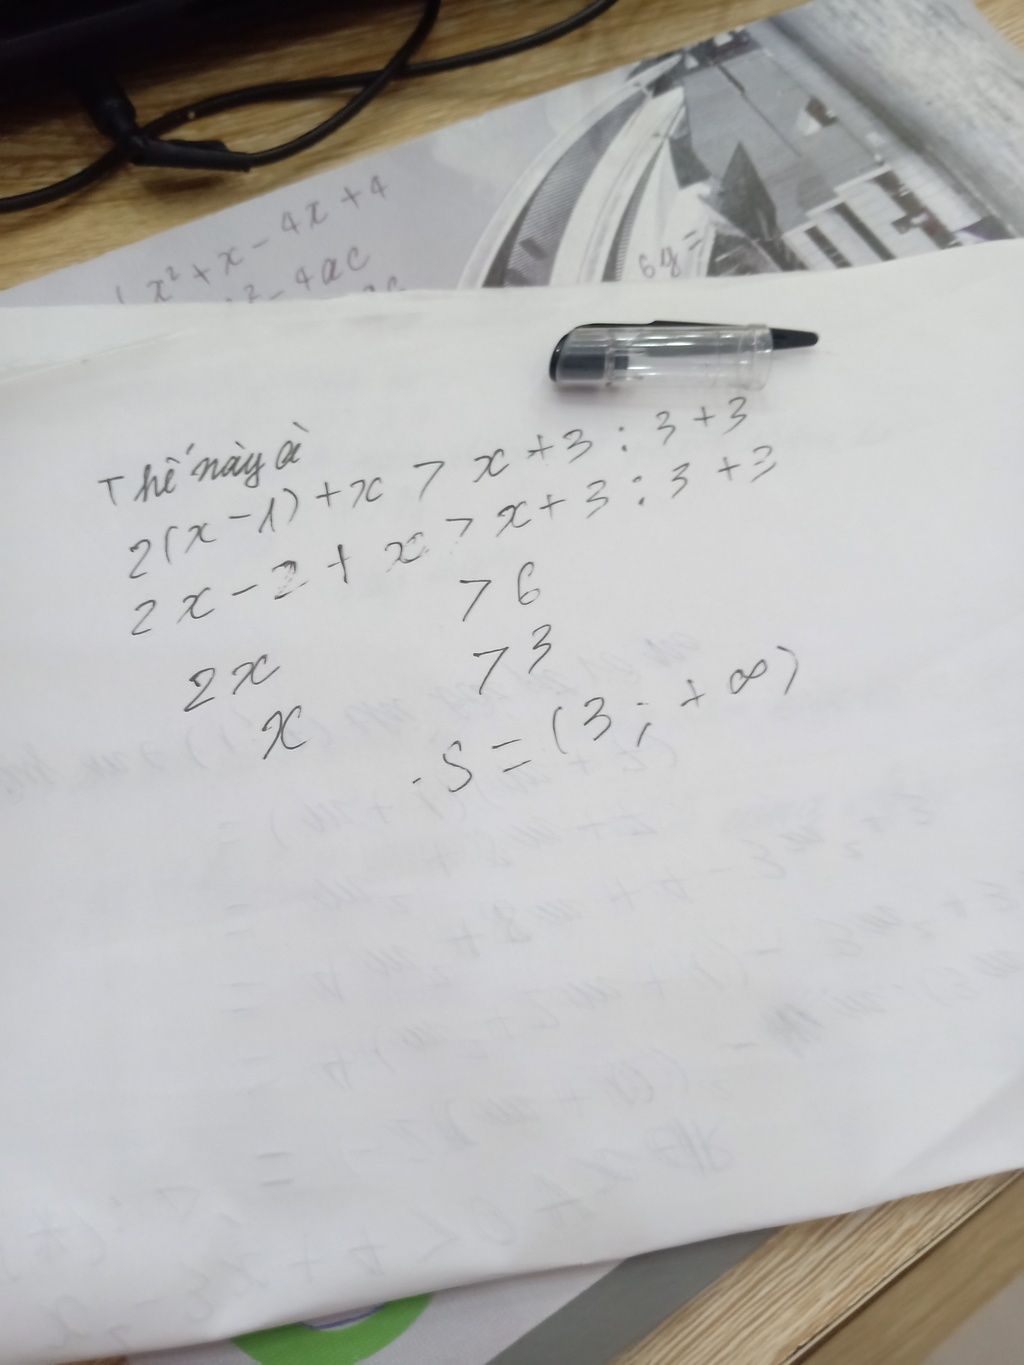 x² + x - 4x + 4
² - 4ac
6y =
Thế này à
2(x - 1) + x > x + 3 : 3 + 3
2x - 2 + x > x + 3 : 3 + 3
2x > 6
x > 3
S = (3 ; + ∞)